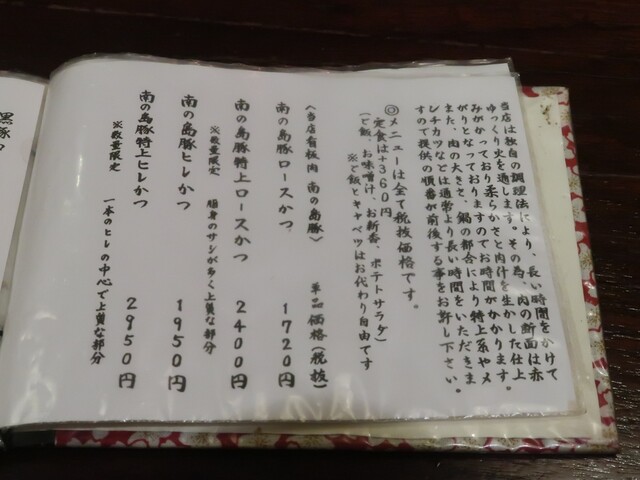 当店は独自の調理法により、長い時間をかけて
ゆっくり火を通します。その為、肉の断面は赤
みがかっており柔らかさと肉汁を生かした仕上
がりとなっておりますのでお時間がかかります。
また、肉の大きさ、鍋の都合により特上系やメ
レチカツなどは通常より長い時間をいただきま
すので提供の順番が前後する事をお許し下さい。
◎メニューは全て税抜価格です。
定食は+360円
(ご飯、お味噌汁、お新香、ポテトサラダ)
※ご飯とキャベツはお代わり自由です
〈当店看板肉 南の島豚〉 単品価格(税抜)
南の島豚ロースかつ 1720円
南の島豚特上ロースかつ 2400円
※数量限定 脂身のサシが多く上質な部分
南の島豚ヒレかつ 1950円
南の島豚特上ヒレかつ 2950円
※数量限定 一本のヒレの中心で上質な部分
黒豚